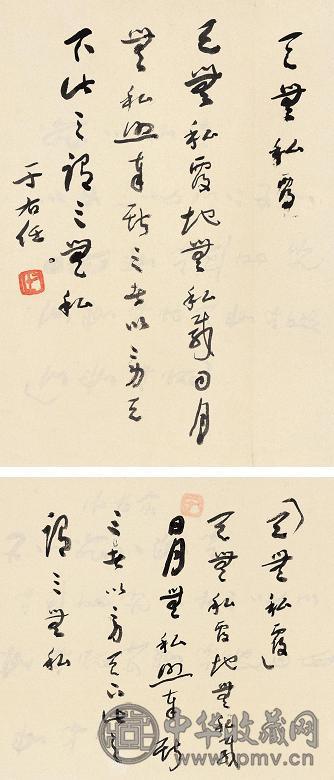 天無私覆
天無私覆地無私載日月
無私照奉斯三者以勞天
下此之謂三無私
于右任
「天無私覆」
天無私覆地無私載
日月無私照奉斯
三者以勞天下此之
謂三無私
中华收藏网
www.pmv.cn